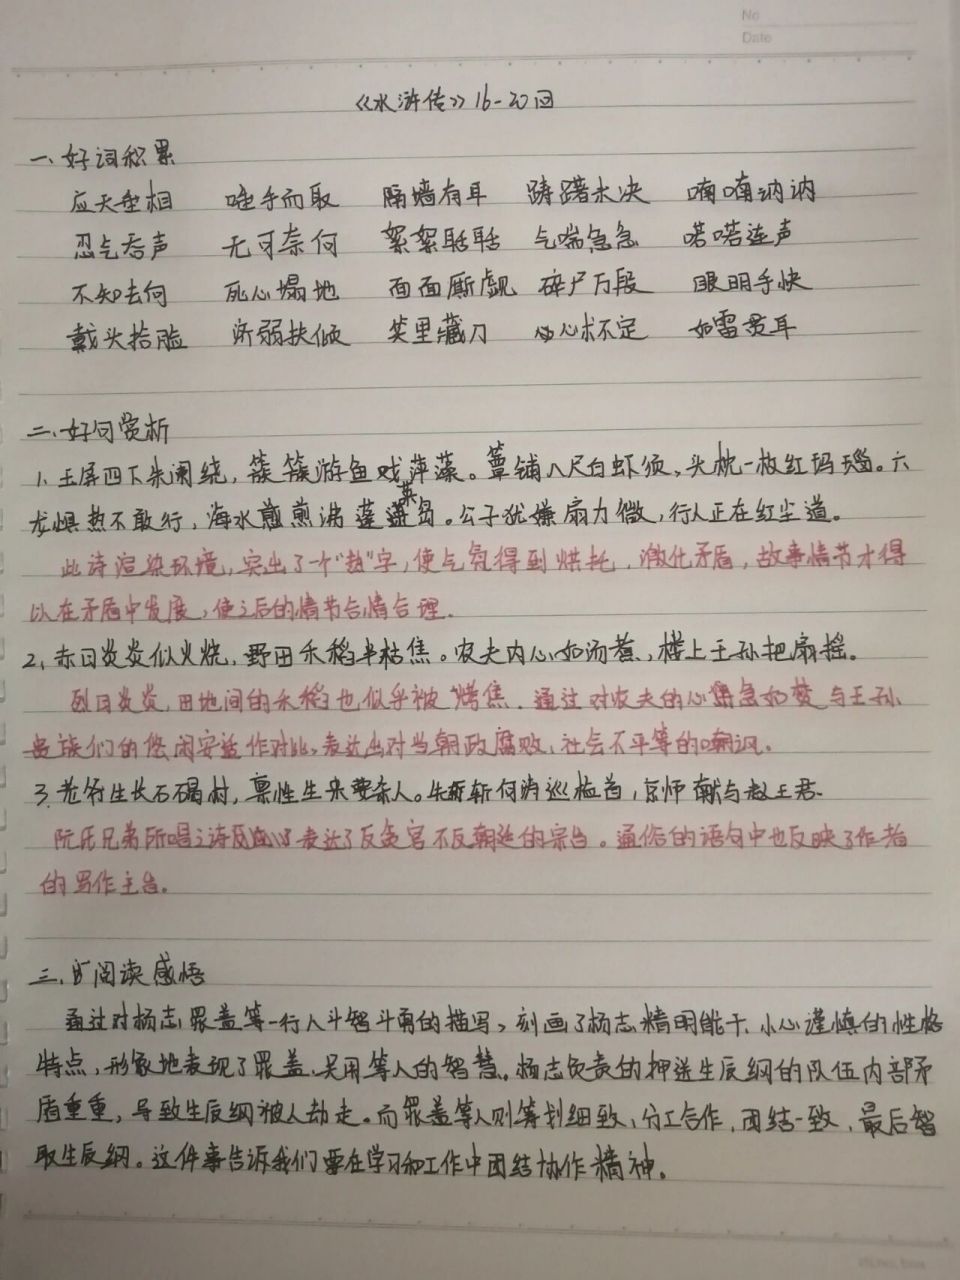 No
Date
《水浒传》16-20回
一、好词积累
应天垂相 唾手而取 隔墙有耳 踌躇未决 喃喃讷讷
忍气吞声 无可奈何 絮絮聒聒 气喘急急 喏喏连声
不知去向 死心塌地 面面厮觑 碎尸万段 眼明手快
戴头抬脸 济弱扶倾 笑里藏刀 心术不定 如雷贯耳
二、好句赏析
1、玉屏四下朱阑绕，簇簇游鱼戏萍藻。簟铺八尺白虾须，头枕一枚红玛瑙。六
龙惧热不敢行，海水煎煎沸蓬莱岛。公子犹嫌扇力微，行人正在红尘道。
此诗渲染环境，突出了一个"热"字，使气氛得到烘托，激化矛盾，故事情节才得
以在矛盾中发展，使之后的情节合情合理。
2、赤日炎炎似火烧，野田禾稻半枯焦。农夫内心如汤煮，楼上王孙把扇摇。
烈日炎炎，田地间的禾稻也似乎被烤焦，通过对农夫的心急如焚与王孙
贵族们的悠闲安逸作对比，表达出对当朝政腐败，社会不平等的嘲讽。
3、老爷生长石碣村，禀性生来要杀人。先斩何涛巡检首，京师献与赵王君。
阮氏兄弟所唱之诗表达了反贪官不反朝廷的宗旨。通俗的语句中也反映了作者
的写作主旨。
三、阅读感悟
通过对杨志晁盖等一行人斗智斗勇的描写，刻画了杨志精明能干、小心谨慎的性格
特点，形象地表现了晁盖、吴用等人的智慧。杨志负责的押送生辰纲的队伍内部矛
盾重重，导致生辰纲被人劫走。而晁盖等人则筹划细致，分工合作，团结一致，最后智
取生辰纲。这件事告诉我们要在学习和工作中团结协作精神。